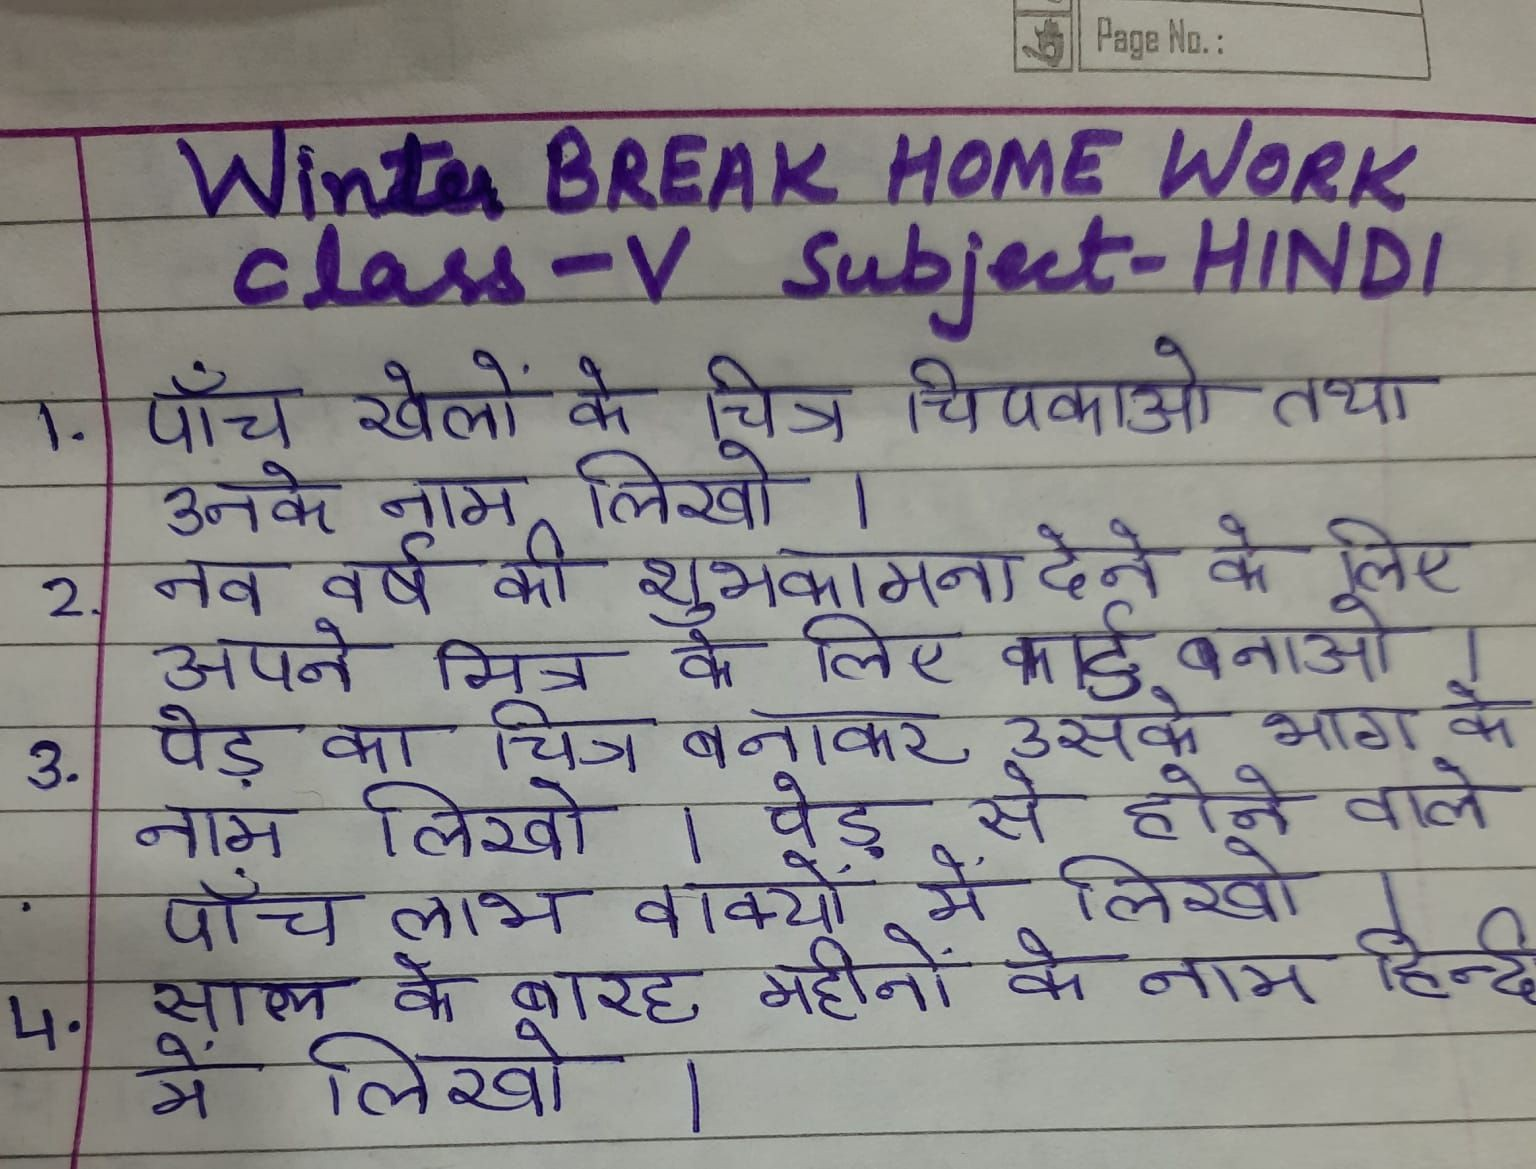 Page No.:
Winter BREAK HOME WORK
Class-V Subject-HINDI
1. पाँच खेलों के चित्र चिपकाओ तथा
उनके नाम लिखो ।
2. नव वर्ष की शुभकामना देने के लिए
अपने मित्र के लिए कार्ड बनाओ ।
3. पेड़ का चित्र बनाकर उसके भाग के
नाम लिखो । पेड़ से होने वाले
पाँच लाभ वाक्यों में लिखो ।
4. साल के बारह महीनों के नाम हिन्दी
में लिखो ।